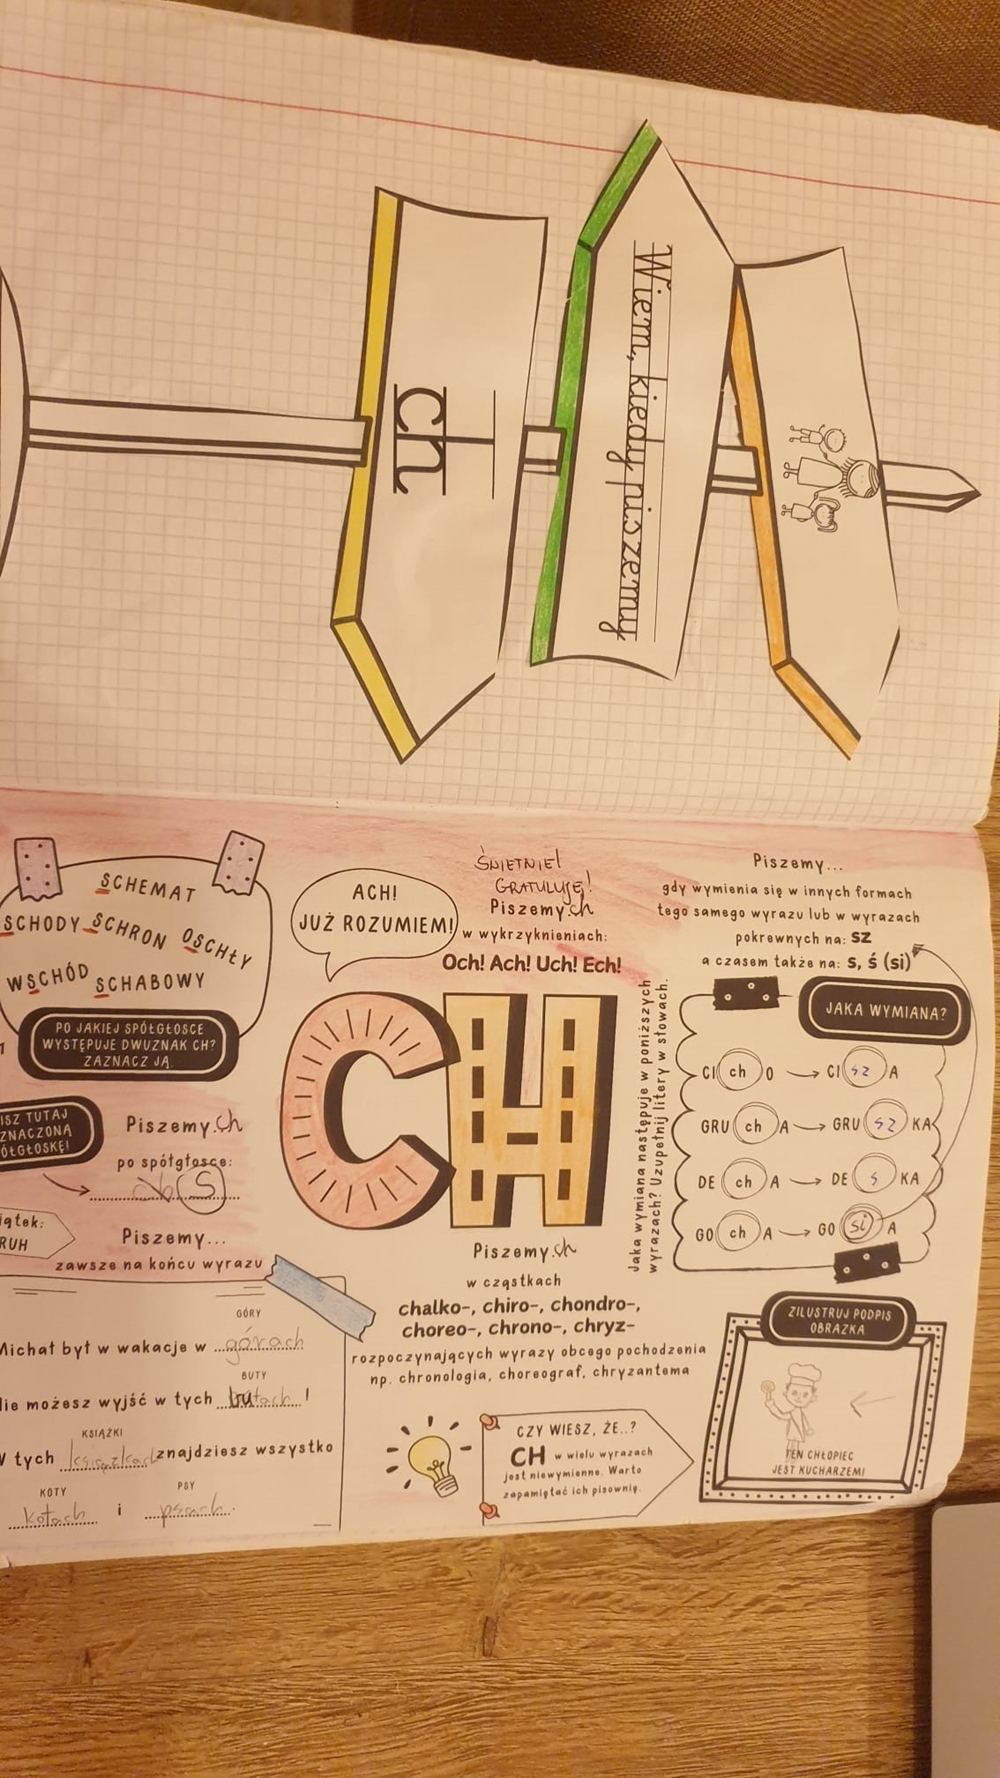 Wiem, kiedy piszemy
ch
SCHEMAT
SCHODY SCHRON OSCHŁY
WSCHÓD SCHABOWY
PO JAKIEJ SPÓŁGŁOSCE
WYSTĘPUJE DWUZNAK CH?
ZAZNACZ JĄ.
ISZ TUTAJ
ZNACZONĄ
ÓŁGŁOSKĘ!
Piszemy ch
po spółgłosce:
S
iątek:
RUH
Piszemy...
zawsze na końcu wyrazu
GÓRY
Michał był w wakacje w górach
BUTY
Nie możesz wyjść w tych butach!
KSIĄŻKI
W tych książkach znajdziesz wszystko
KOTY PSY
kotach i psach.
ACH!
JUŻ ROZUMIEM!
ŚWIETNIE!
GRATULUJĘ!
Piszemy ch
w wykrzyknieniach:
Och! Ach! Uch! Ech!
CH
Piszemy ch
w cząstkach
chalko-, chiro-, chondro-,
choreo-, chrono-, chryz-
rozpoczynających wyrazy obcego pochodzenia
np. chronologia, choreograf, chryzantema
CZY WIESZ, ŻE..?
CH w wielu wyrazach
jest niewymienne. Warto
zapamiętać ich pisownię.
Piszemy...
gdy wymienia się w innych formach
tego samego wyrazu lub w wyrazach
pokrewnych na: sz
a czasem także na: s, ś (si)
Jaka wymiana następuje w poniższych
wyrazach? Uzupełnij litery w słowach.
JAKA WYMIANA?
CI ch O → CI sz A
GRU ch A → GRU sz KA
DE ch A → DE s KA
GO ch A → GO si A
ZILUSTRUJ PODPIS
OBRAZKA
TEN CHŁOPIEC
JEST KUCHARZEM!